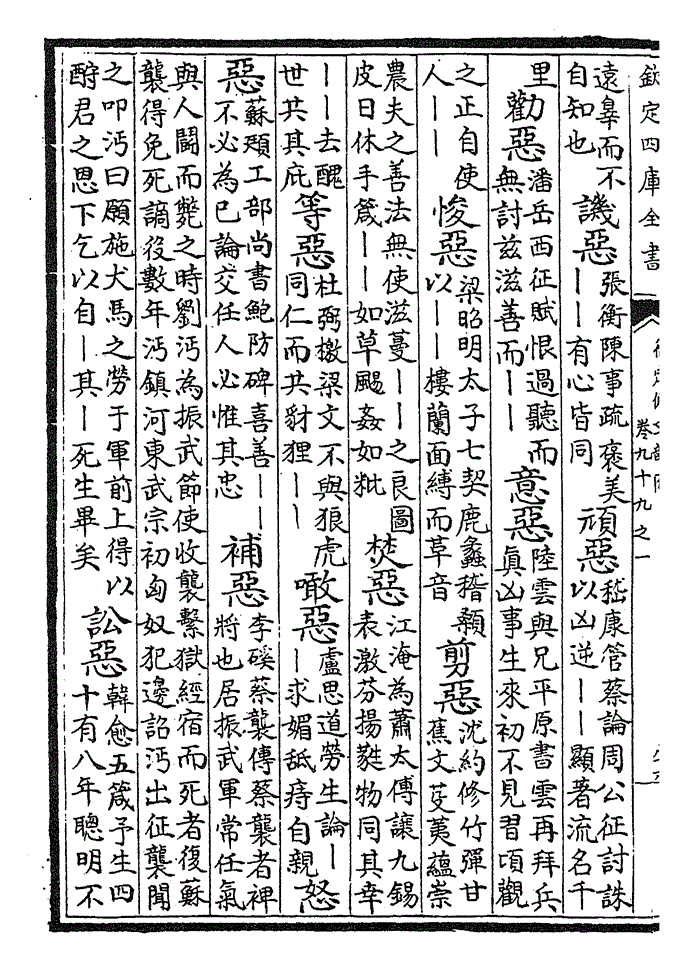 欽定四庫全書
卷九十九之一
遠辠而不
自知也
譏惡
張衡陳事疏褒美
——有心皆同
頑惡
嵇康管蔡論周公征討誅
以凶逆——顯著流名千
里
勸惡
潘岳西征賦恨過聽而
無討兹滋善而——
意惡
陸雲與兄平原書雲再拜兵
真凶事生來初不見習頃觀
之正自使
人——
悛惡
梁昭明太子七契鹿蠡稽顙
以——樓蘭面縛而草音
剪惡
沈約修竹彈甘
蕉文芟荑蘊崇
農夫之善法無使滋蔓——之良圖
皮日休手箴——如草颺姦如粃
焚惡
江淹為蕭太傅讓九錫
表激芬揚蕤物同其幸
——去醜
世共其庇
等惡
杜弼檄梁文不與狼虎
同仁而共豺狸——
噉惡
盧思道勞生論—
—求媚舐痔自親
怒
惡
蘇頲工部尚書鮑防碑喜善——
不必為已論交任人必惟其忠
補惡
李磎蔡襲傳蔡襲者裨
將也居振武軍常任氣
與人鬬而斃之時劉沔為振武節使收襲繫獄經宿而死者復蘇
襲得免死謫役數年沔鎮河東武宗初匈奴犯邊詔沔出征襲聞
之叩沔曰願施犬馬之勞于軍前上得以
酧君之恩下乞以自—其—死生畢矣
訟惡
韓愈五箴予生四
十有八年聰明不